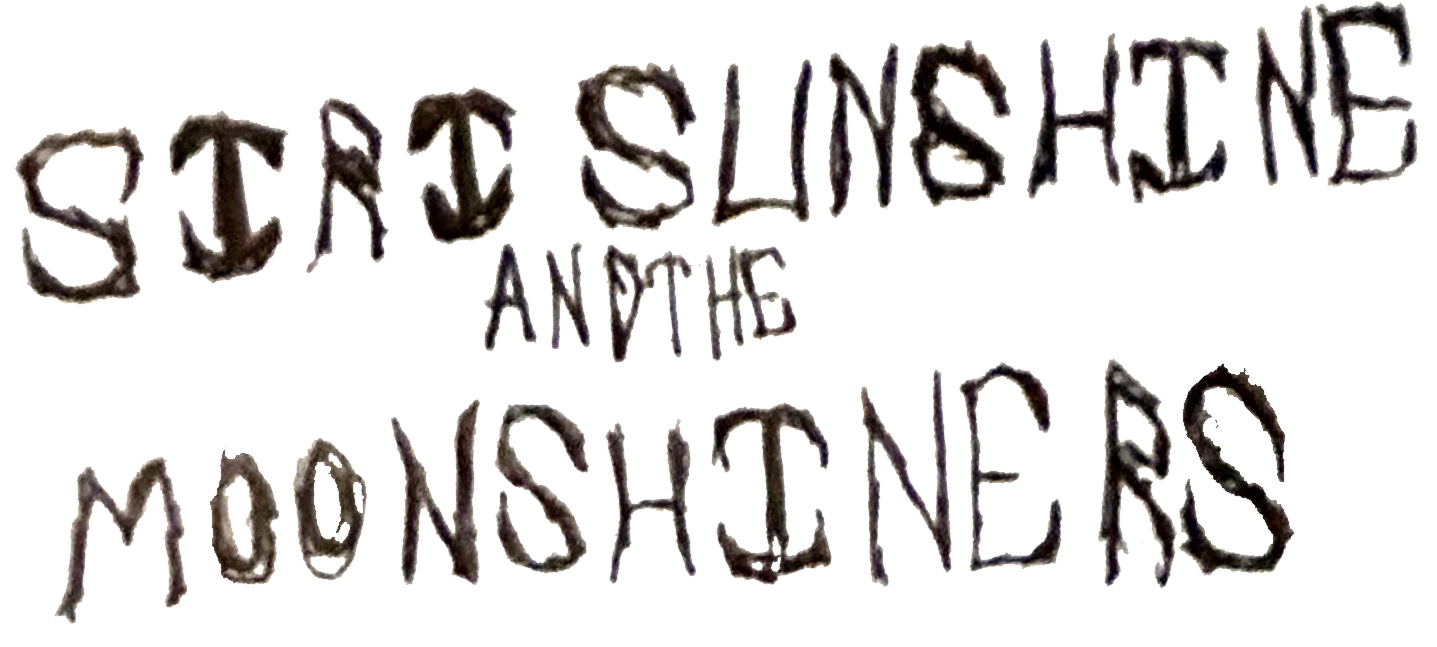 SIRI SUNSHINE
AND THE
MOONSHINERS